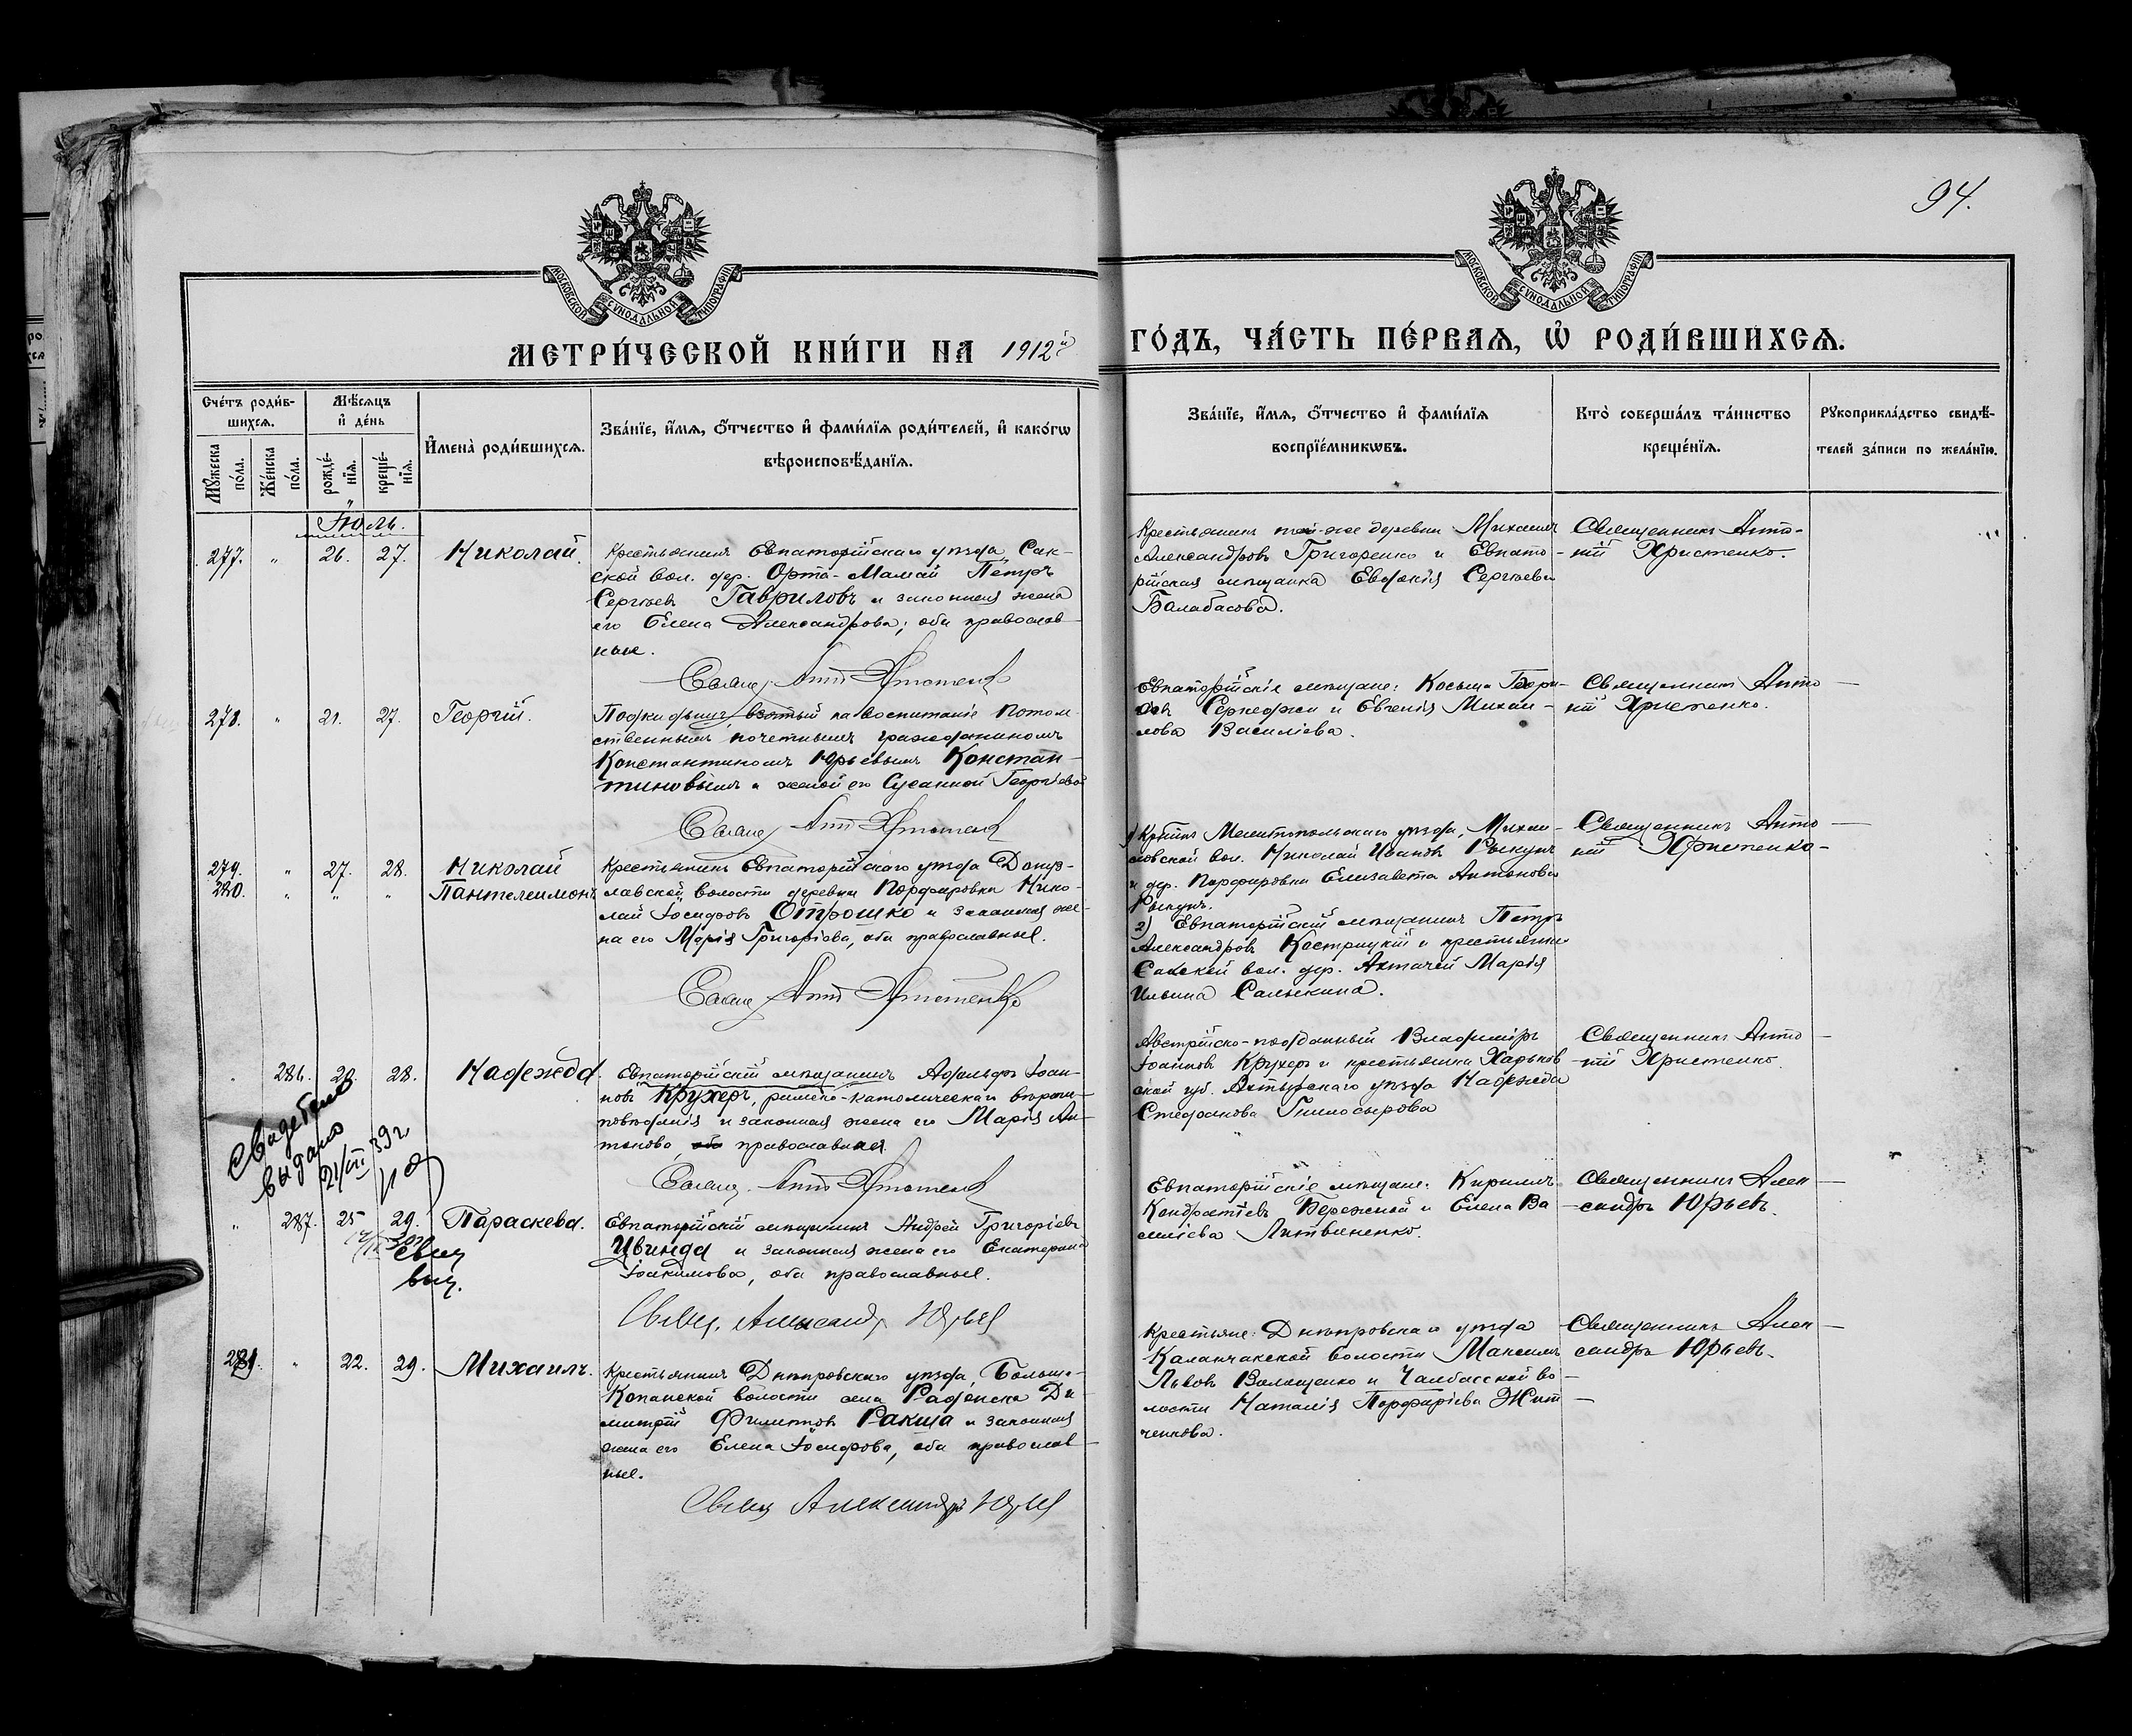 94.
МОСКОВСКОЙ СѴНОДАЛЬНОЙ ТИПОГРАФІИ
МОСКОВСКОЙ СѴНОДАЛЬНОЙ ТИПОГРАФІИ
МЕТРИ́ЧЕСКОЙ КНИ́ГИ НА 1912й
ГО́ДЪ, ЧА́СТЬ ПЕ́РВАЯ, Ѡ҆ РОДИ́ВШИХСЯ.
Сче́тъ роди́в-
шихся.
Мѣ́сяцъ
и҆ де́нь
Мꙋ́жеска
по́ла.
Же́нска
по́ла.
рожде́-
нїя.
креще́-
нїя.
И҆мена̀ роди́вшихся.
Зва́нїе, и҆́мя, ѻ҆́тчество и҆ фами́лїя роди́телей, и҆ како́гѡ
вѣроисповѣ́данїя.
Зва́нїе, и҆́мя, ѻ҆́тчество и҆ фами́лїя
воспрїе́мникѡвъ.
Кто̀ соверша́лъ та́инство
креще́нїя.
Рꙋкоприкла́дство свидѣ́-
телей за́писи по жела́нїю.
Іюль.
277. " 26. 27. Николай.
Крестьянинъ Евпаторійскаго уѣзда, Сак-
ской вол. дер. Орта-Мамай Петръ
Сергѣевъ Гавриловъ и законная жена
его Елена Александрова; оба православ-
ные.
Крестьянинъ той-же деревни Михаилъ
Александровъ Григоренко и Евпато-
рійская мѣщанка Евфимія Сергѣева
Балабасова.
Священникъ Анто-
ній Христенко.
278. " 21. 27. Георгій.
Подкидышъ, взятый на воспитаніе потом-
ственнымъ почетнымъ гражданиномъ
Константиномъ Юрьевымъ Констан-
тиновымъ и женой его Сусанной Георгіевой
Евпаторійскіе мѣщане: Косьма Геор-
Евгенія Михаи-
лова Василіева.
Священникъ Анто-
ній Христенко.
279. " 27. 28. Николай
280. " " " Пантелеимонъ
Крестьянинъ Евпаторійскаго уѣзда Донуз-
лавской волости деревни Порфировки Нико-
лай Іосифовъ Отрошко и законная же-
на его Марія Григоріева, оба православные.
1) Кр-нинъ Мелитопольскаго уѣзда, Михаи-
ловской вол. Николай Ивановъ Рыкунъ
и дер. Порфировки Елизавета Антонова
Рыкунъ.
2) Евпаторійскій мѣщанинъ Петръ
Александровъ Кострицкій и крестьянка
Сакской вол. дер. Актачей Марія
Ильина Салыкина.
Священникъ Анто-
ній Христенко.
" 286. 28. 28. Надежда.
Евпаторійскій мѣщанинъ Адольфъ Іоан-
новъ Крухеръ, римско-католическаго вѣрои-
повѣданія и законная жена его Марія Ан-
тонова, оба православная.
Австрійско-подданный Владиміръ
Іоанновъ Крухеръ и крестьянка Харьков-
ской губ. Ахтырскаго уѣзда Надежда
Стефанова Гнилосырова
Священникъ Анто-
ній Христенко.
выдано
" 287. 25 29. Параскева.
Евпаторійскій мѣщанинъ Андрей Григоріевъ
Цвинда и законная жена его Екатерина
Іоакимова, оба православные.
Евпаторійскіе мѣщане: Кириллъ
Кондратіевъ Бережной и Елена Ва-
силіева Литвиненко.
Священникъ Алек-
сандръ Юрьевъ.
281. " 22. 29. Михаилъ.
Крестьянинъ Днѣпровскаго уѣзда, Больше-
Копанской волости села Раденска Ди-
митрій Филипповъ Ракша и законная
жена его Елена Іосифова, оба православ-
ные.
Крестьяне: Днѣпровскаго уѣзда
Каланчакской волости Максимъ
Львовъ Волощенко и Чалбасской во-
лости Наталія Порфиріева Жит-
ченкова.
Священникъ Алек-
сандръ Юрьевъ.